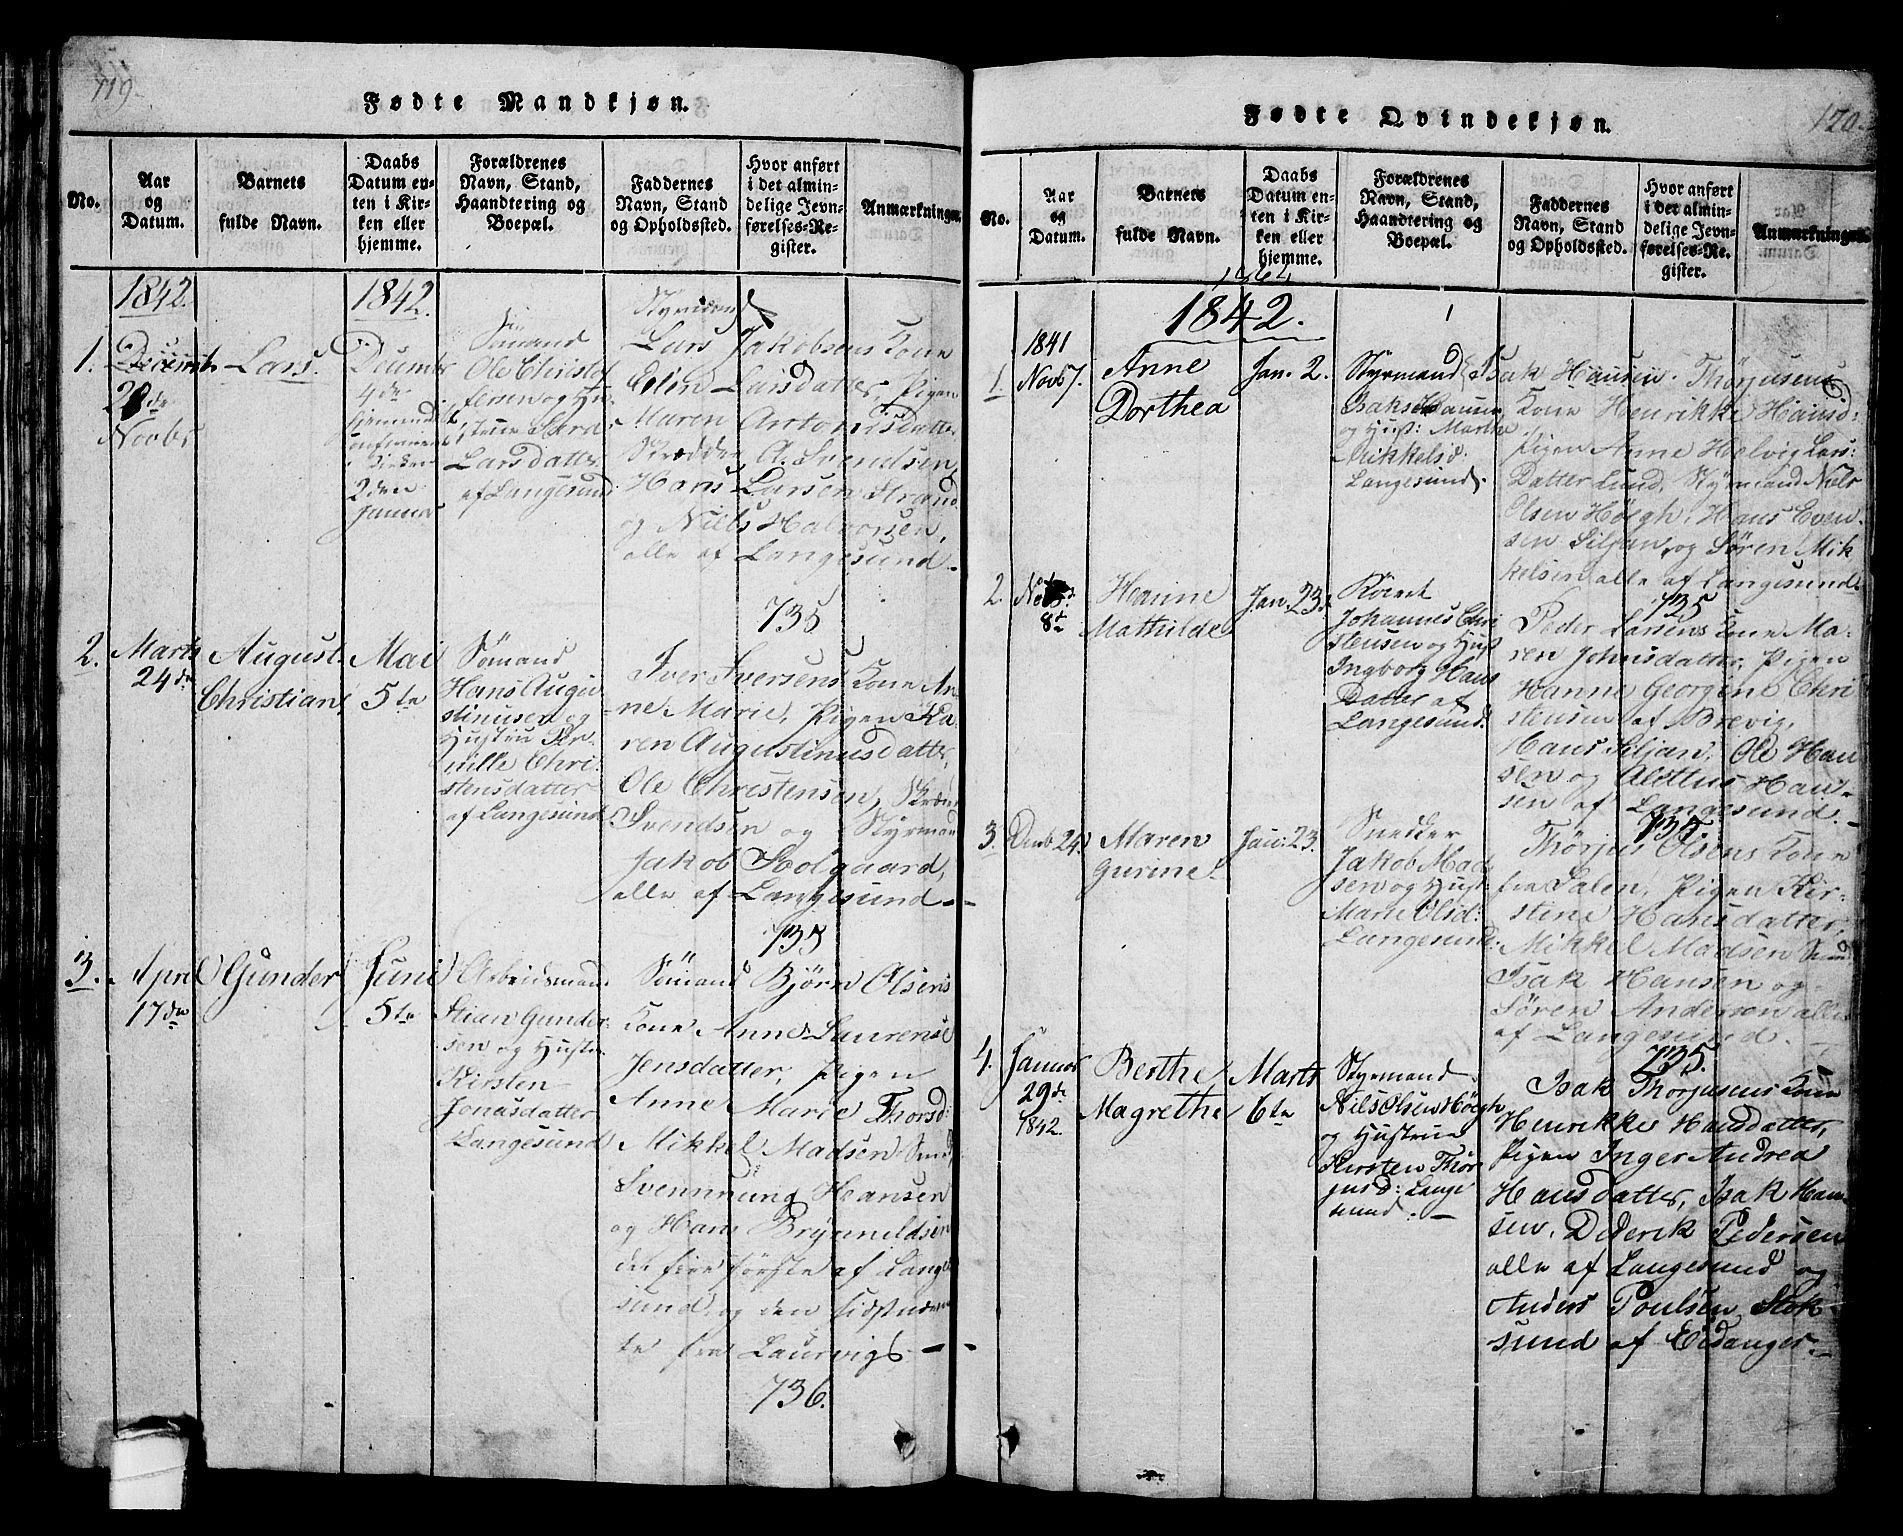 119.
Fødte Mandkjøn.
No.
Aar
og
Datum.
Barnets
fulde Navn.
Daabs
Datum en-
ten i Kir-
ken eller
hjemme.
Forældrenes
Navn, Stand,
Haandtering og
Boepæl.
Faddernes
Navn, Stand
og Opholdssted.
Hvor anført
i det almin-
delige Jevn-
førelses-Re-
gister.
Anmærkninger.
1842.
1842.
1.
Novbr
Lars.
Decembr
4de
2den
Januar
Sømand
Ole Christof
fersen og Hu-
strue Sara
Larsdatter
af Langesund
Lars Jakobsens Kone
Elen Larsdatter, Pigen
Maren Antonisdatter
Skrædder A. Svendsen,
Hans Larsen Strand
og Niels Halvorsen,
alle af Langesund.
735
2.
Marts
24de
August
Christian
Mai
5te
Sømand
Hans Augu
stinusen og
Hustru Per-
nille Chri-
stensdatter
af Langesund
Iver Iversens Kone An-
ne Marie, Pigen Ka-
ren Augustinusdatter,
Ole Christensen,
Svendsen og Styrmand
Jakob Solgaard,
alle af Langesund.
735
3.
April
17de
Gunder
Juni
5te
Arbeidsmand
Stian Gunder-
sen og Hustru
Kirsten
Jonasdatter
Langesund
Sømand Bjørn Olsens
Kone Anne Laurense
Jensdatter, Pigen
Anne Marie Thorsd:
Mikkel Madsen
Svennung Hansen
og Hans Brynnildsen
de fire første af Lange
sund, og den sidstnævn-
te fra Laurvigs
736.
120.
Fødte Qvindekjøn.
No.
Aar
og
Datum.
Barnets
fulde Navn.
Daabs
Datum en-
ten i Kir-
ken eller
hjemme.
Forældrenes
Navn, Stand,
Haandtering og
Boepæl.
Faddernes
Navn, Stand
og Opholdssted.
Hvor anført
i det almin-
delige Jevn-
førelses-Re-
gister.
Anmærkninger.
1842.
1841
1.
Novb 7.
Anne
Dorthea
Jan. 2.
Styrmand
Isak Hansen
og Hust: Marthe
Mikkelsd:
Langesund.
Isak Hansen Thørjusens
Kone Henrikke Hansd:
Pigen Anne Helvig Lars:
Datter Lund, Styrmand Niels
Olsen Høegh, Hans Even-
sen Siljan, og Søren Mik
kelsen alle af Langesund.
735
2.
8de
Hanne
Mathilde
Jan. 23.
Johannes Chri
stensen og Hust
Ingborg Hans
Datter af
Langesund.
Peder Larsens Kone Ma-
ren Johnsdatter, Pigen
Hanne Georgine Chri
stensen af Brevig,
Hans Siljan, Ole Han
sen og Han-
sen af Langesund.
735.
3.
Decb 24.
Maren
Gurine.
Jan: 23.
Snedker
Jakob Mad
sen og Hust:
Marie Olsd:
Langesund:
Thørjus Olsens Kone
fra Salen, Pigen Kir-
stine Hansdatter,
Mikkel Madsen
Isak Hansen og
Søren Andersen alle
af Langesund.
735.
4.
Januar
29de
1842.
Berthe
Magrethe
Marts
6te
Styrmand
Nils Olsen Høegh
og Hustrue
Kirsten Thør
jusd: Lange
sund.
Isak Thorjusens Kone
Henrikke Hansdatter,
Pigen Inger Andrea
Hansdatter, Isak Han-
sen, Diderik Pedersen
alle af Langesund og
Anders Poulsen Stok-
sund af Eidanger.